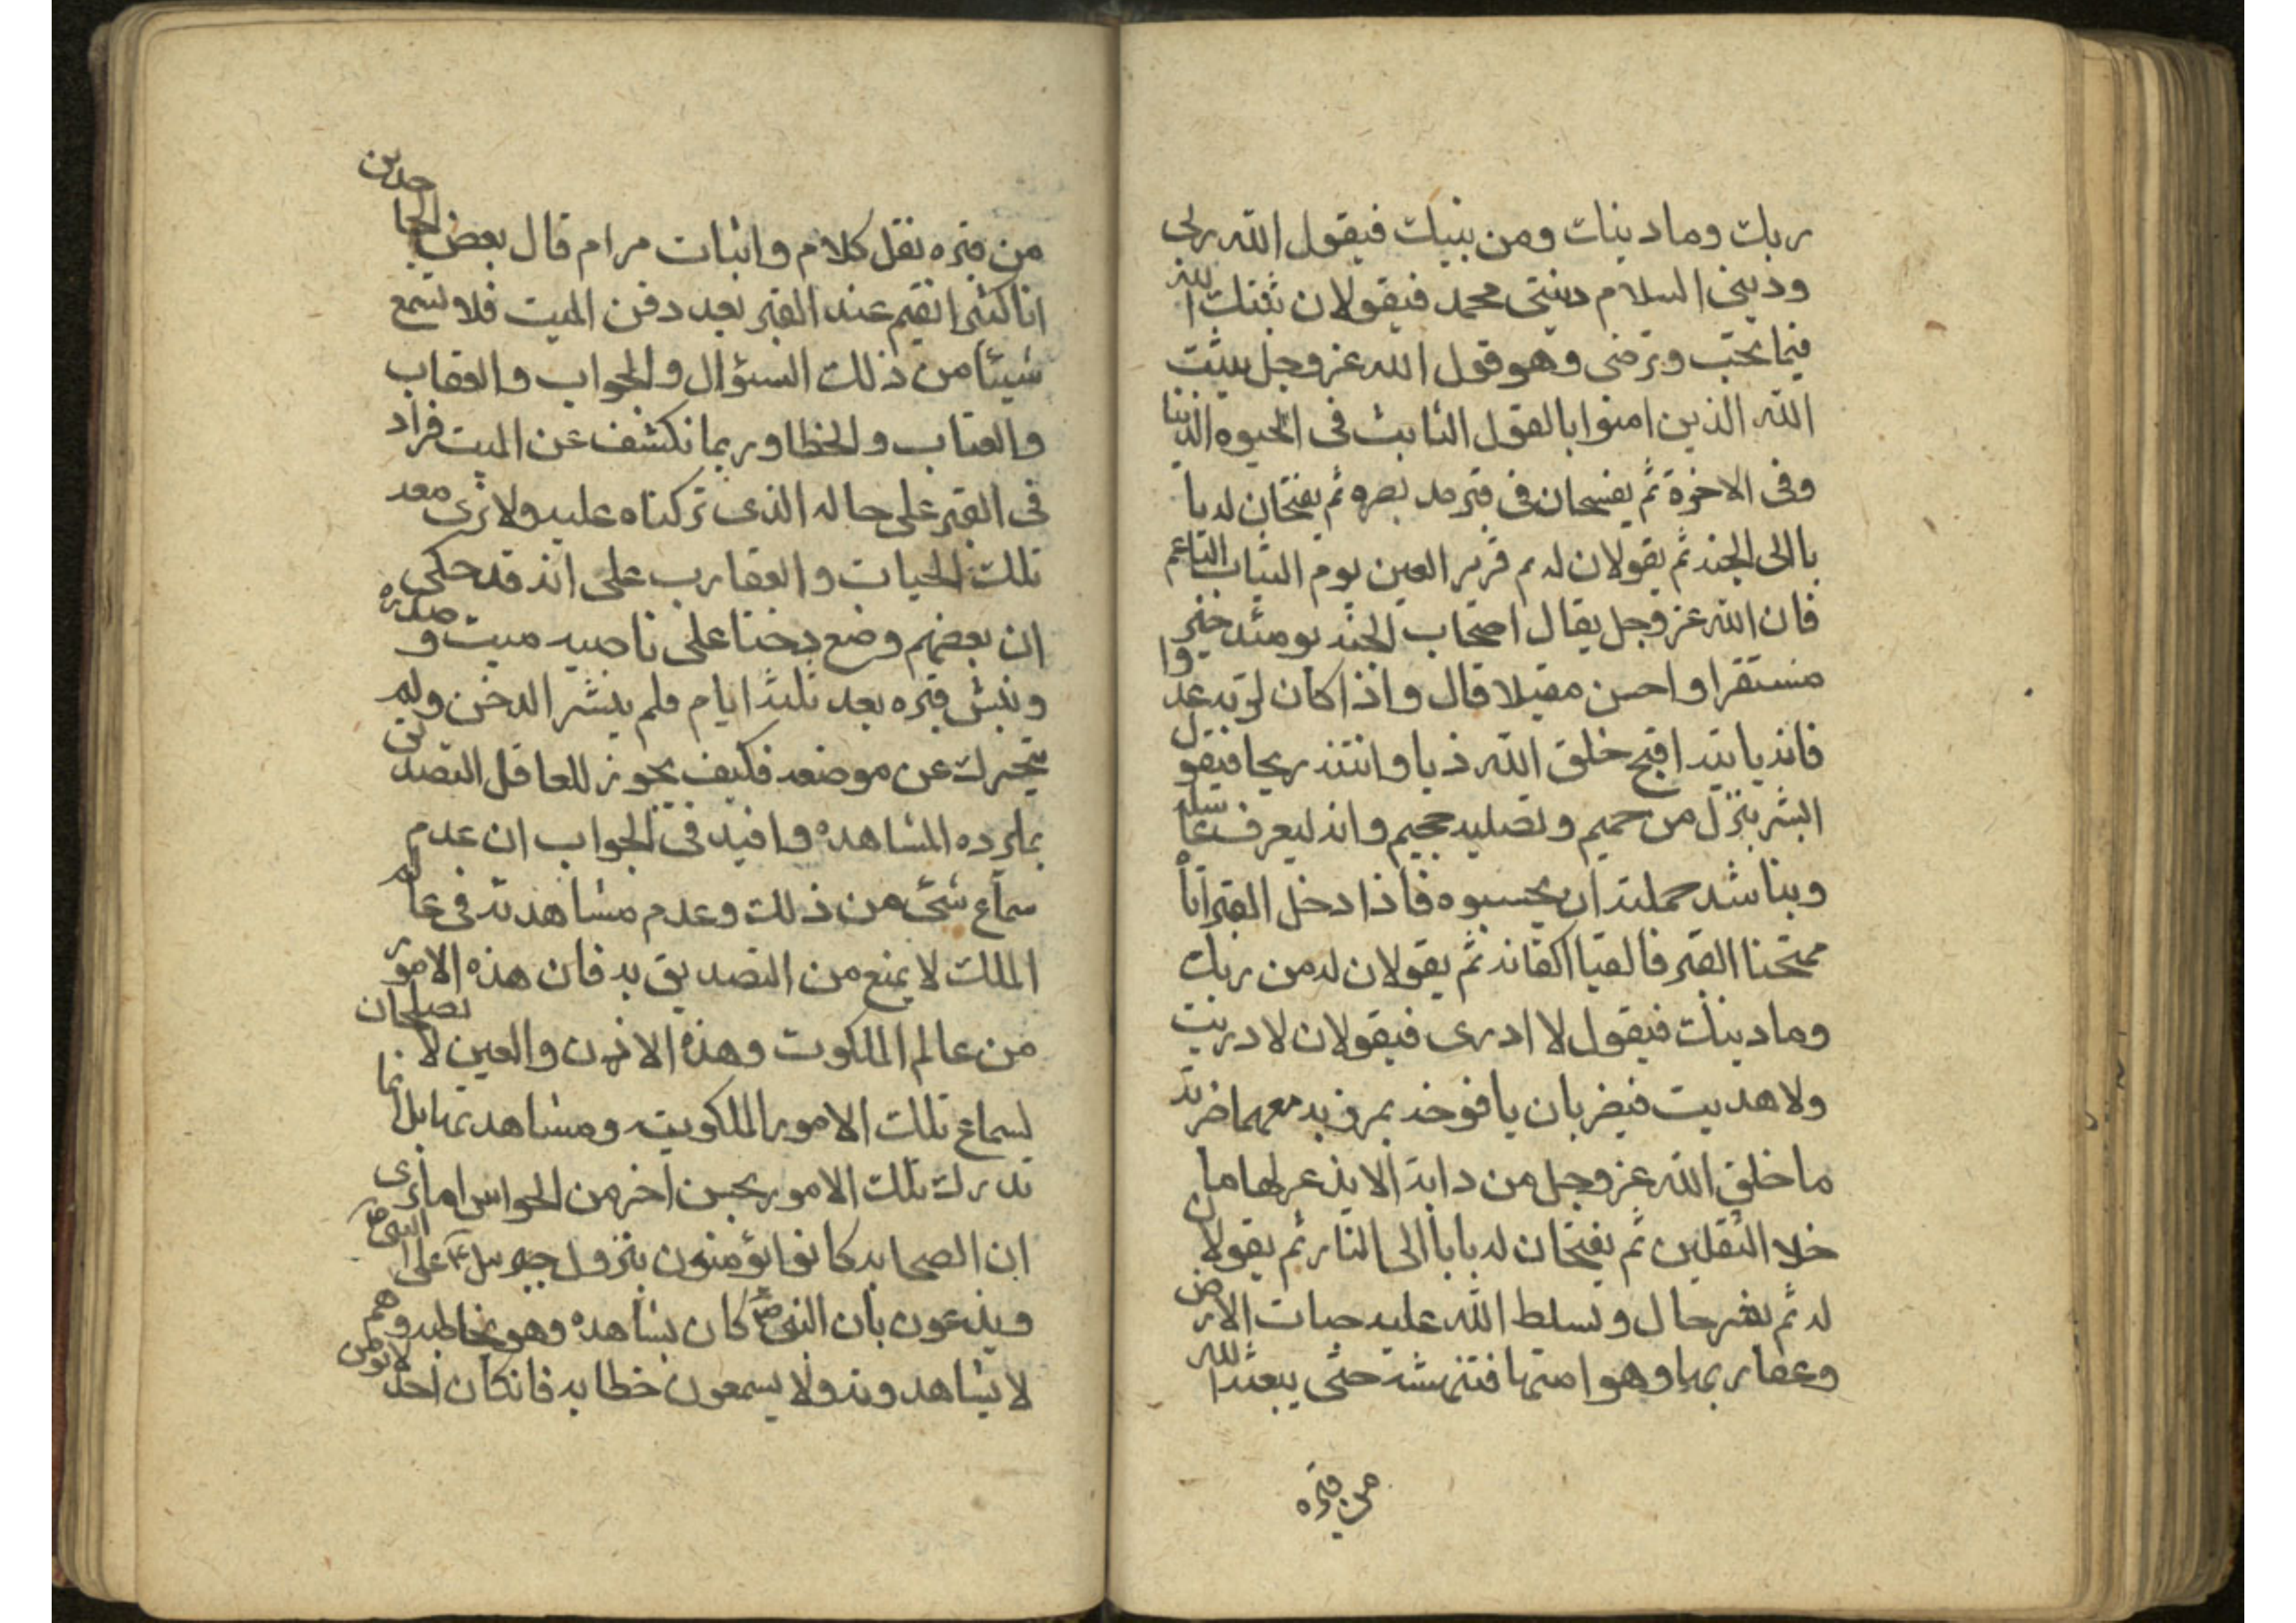 ربك وما دينك ومن نبيك فيقول الله ربى
ودينى السلام ونبيى محمد فيقولان ثبتك الله
فيما يحب ويرضى وهو قول الله عز وجل يثبت
الله الذين امنوا بالقول الثابت فى الحيوه الدنيا
وفى الاخرة ثم يفسحان فى قبره مد بصره ثم يفتحان له با
با الى الجنه ثم يقولان له نم قرير العين نوم الشاب الناعم
فان الله عز وجل يقال اصحاب الجنه يومئذ خير
مستقرا واحسن مقيلا قال واذا كان لربه عدوا
فانه ياتيه اقبح خلق الله زيا وانتنه ريحا فيقول
ابشر بنزل من حميم وتصليه جحيم وانه ليعرف غاسله
ويناشد حملته ان يحبسوه فاذا دخل القبر اتاه
ممتحنا القبر فالقيا اكفانه ثم يقولان له من ربك
وما دينك فيقول لا ادرى فيقولان لا دريت
ولا هديت فيضربان يافوخه بمرزبه معهما ضربة
ما خلق الله عز وجل من دابة الا يذعر لها ما
خلا الثقلين ثم يفتحان له بابا الى النار ثم يقولان
له نم بشر حال ويسلط الله عليه حيات الارض
وعقاربها وهوامها فتنهشه حتى يبعثه الله
من قبره
من قبره نقل كلام واثبات مرام قال بعض الجاحدين
انا كنى انقيم عند القبر بعد دفن الميت فلا نسمع
شيئا من ذلك السؤال والجواب والعقاب
والعتاب والخطا وربما نكشف عن الميت فراد
فى القبر على حاله الذى تركناه عليه ولا نرى معه
تلك الحيات والعقارب على انه قد حكى
ان بعضهم وضع دخنا على ناصيه ميت وصدره
ونبش قبره بعد ثلثة ايام فلم ينشر الدخن ولم
يتحرك عن موضعه فكيف يجوز للعاقل التصديق
بما يرده المشاهده وافيد فى الجواب ان عدم
سماع شئ من ذلك وعدم مشاهدته فى عالم
الملك لا يمنع من التصديق به فان هذه الامور
من عالم الملكوت وهذه الاذن والعين لا تصلحان
لسماع تلك الامور الملكويته ومشاهدتها بل انما
تدرك تلك الامور بحس اخر من الحواس اما ترى
ان الصحابه كانوا يؤمنون بنزول جبرئيل ع على النبى ص
ويذعون بان النبى ص كان يشاهده وهو يخاطبه وهم
لا يشاهدونه ولا يسمعون خطابه فانكان احد لا يؤمن